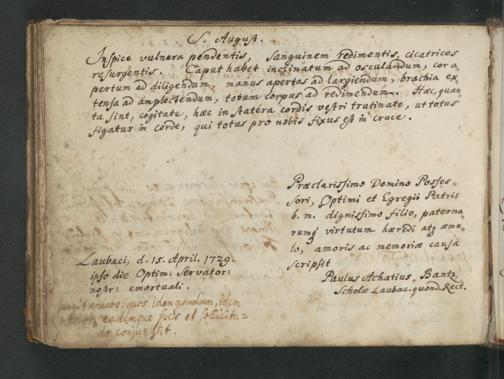 S. August.
Inspice vulnera pendentis, sanguinem redimentis, cicatrices
resurgentis. Caput habet inclinatum ad osculandum, cor a
pertum ad diligendum, manus apertas ad largiendum, brachia ex
tensa ad amplectendum, totum corpus ad redimendum. Hæc, quan
ta sint, cogitate, hæc in statera cordis vestri trutinate, ut totus
figatur in corde, qui totus pro nobis fixus est in cruce.
Præclarissimo Domino Posses-
sori, Optimi et Egregii Patris
b. m. dignissimo filio, paterna
rumq virtutum hæredi atq æmu-
lo, amoris ac memoriæ causa
scripsit
Paulus Achatius Bantz,
Scholæ Laubac. quond. Rect.
Laubaci, d. 15. April. 1729.
ipso die Optim: Servator:
nostr: emortuali.
quos idem
eademque spes et sollicitu-
do